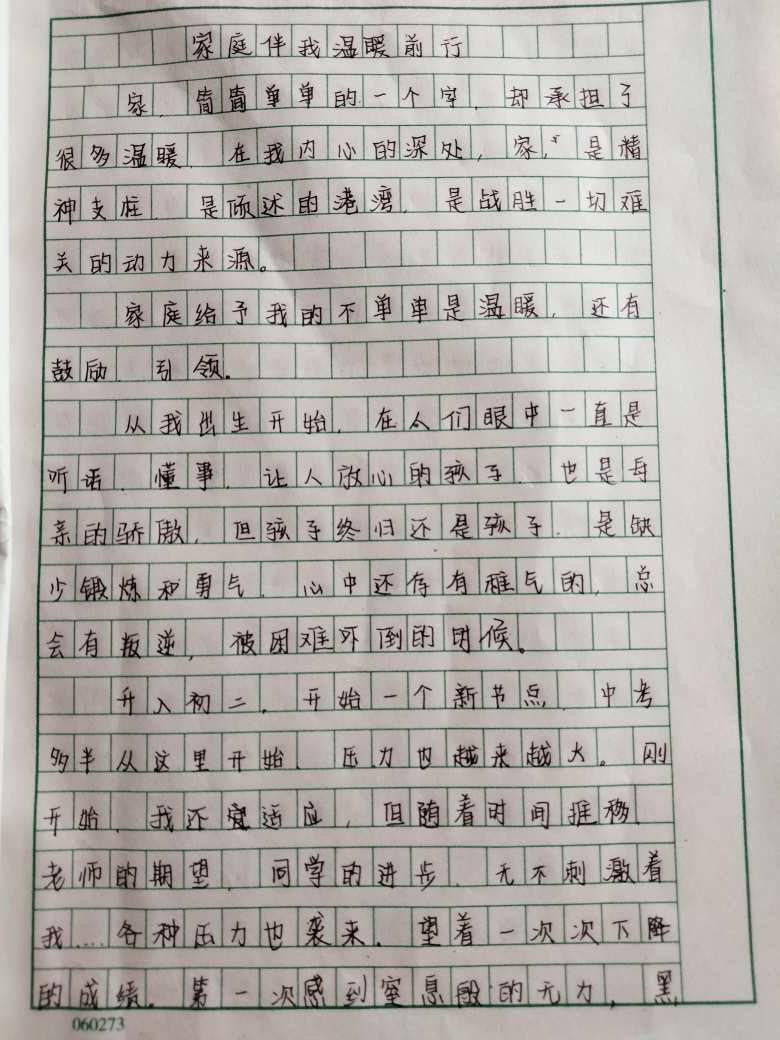 家庭伴我温暖前行
家,简简单单的一个字,却承担了
很多温暖,在我内心的深处,家,是精
神支柱,是倾述的港湾,是战胜一切难
关的动力来源。
家庭给予我的不单单是温暖,还有
鼓励、引领。
从我出生开始,在人们眼中一直是
听话、懂事,让人放心的孩子,也是母
亲的骄傲,但孩子终归还是孩子,是缺
少锻炼和勇气,心中还存有稚气的,总
会有叛逆,被困难吓倒的时候。
升入初二,开始一个新节点,中考
多半从这里开始,压力也越来越大。刚
开始,我还适应,但随着时间推移,
老师的期望,同学的进步,无不刺激着
我....各种压力也袭来,望着一次次下降
的成绩,第一次感到窒息般的无力,黑
060273